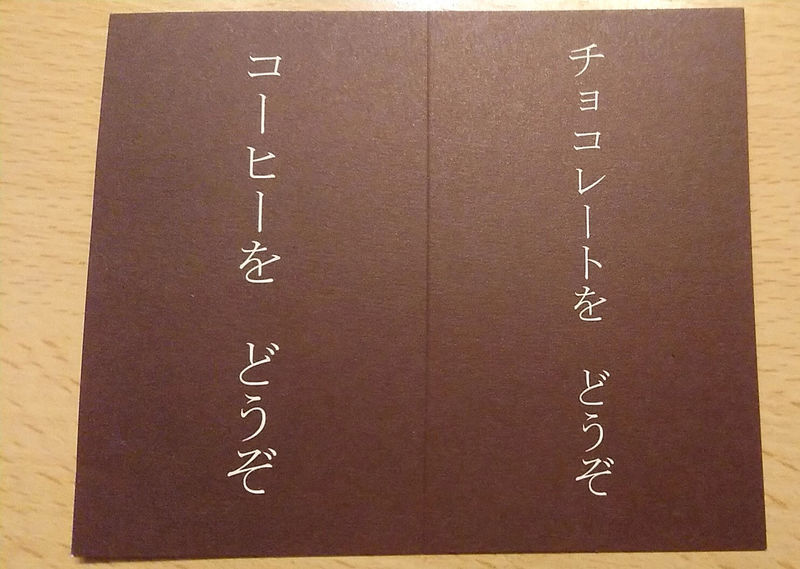 チョコレートを　どうぞ
コーヒーを　どうぞ